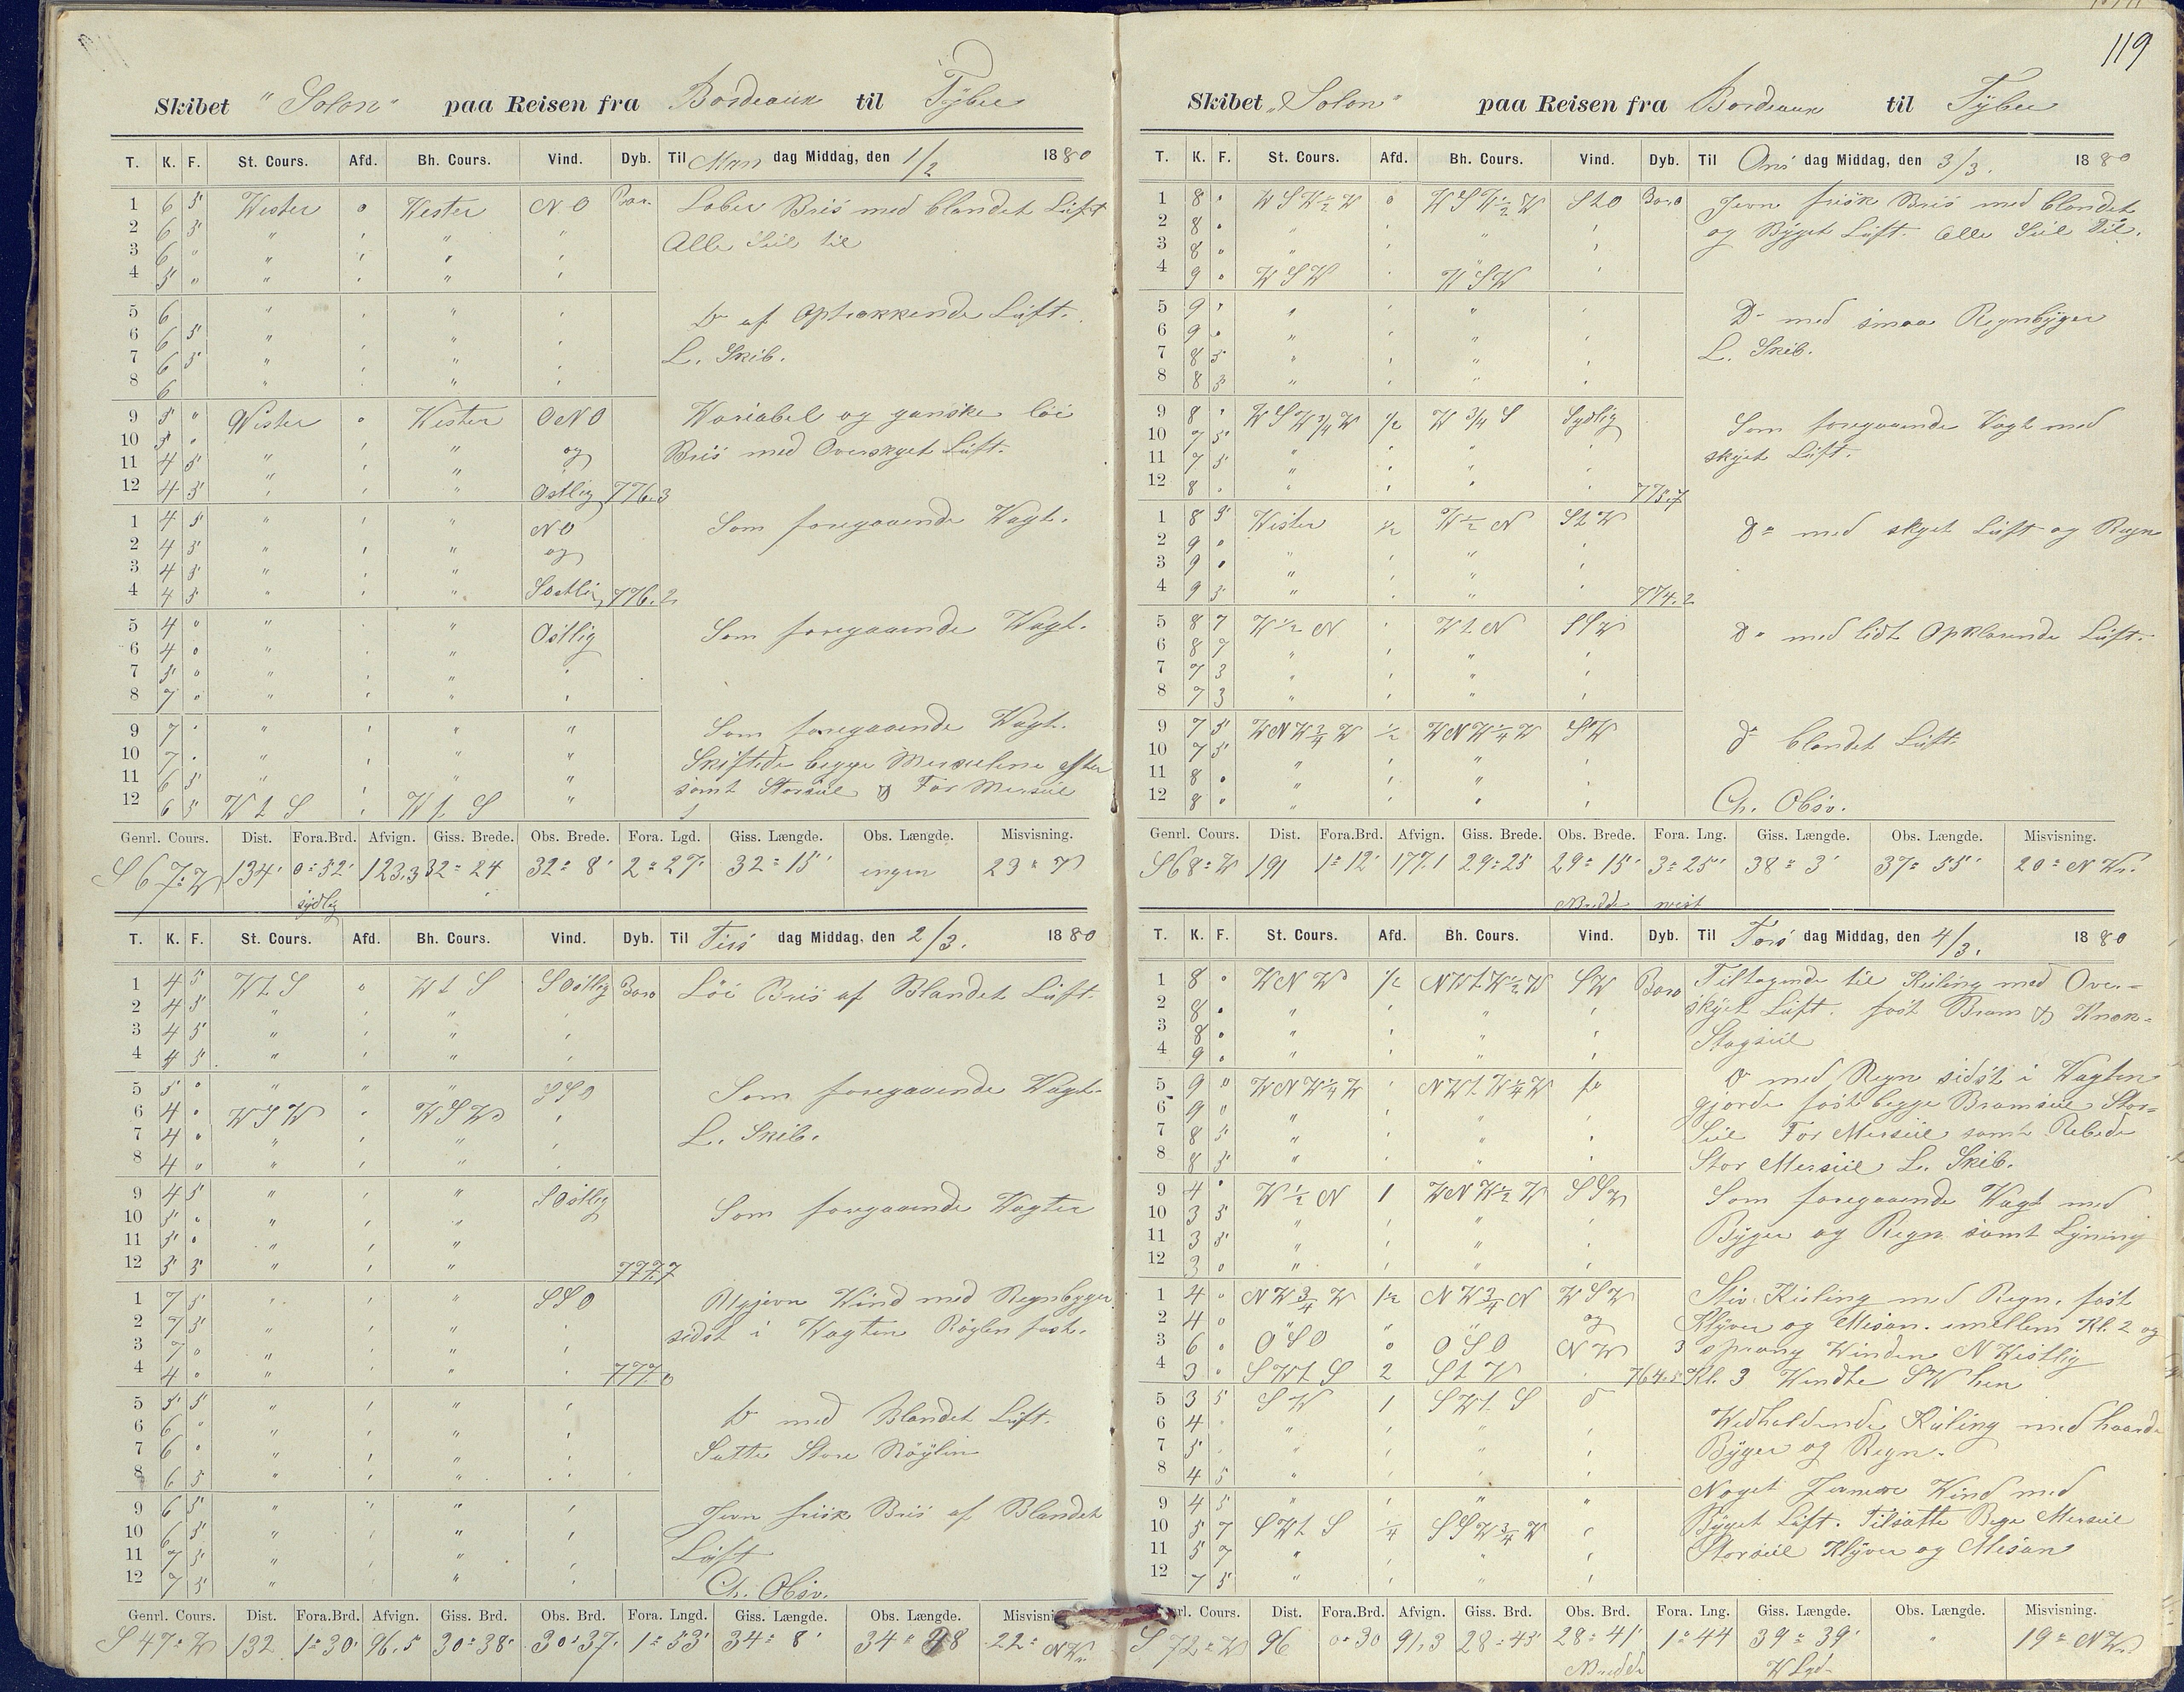 119
Skibet "Solon" paa Reisen fra Bordeaux til Tybee
T. K. F. St. Cours. Afd. Bh. Cours. Vind. Dyb. Til Man dag Middag, den 1/2 1880
1 6 5 Wester 0 Wester NO Bar. Laber Bris med blandet Luft
2 6 5 " " "
Alle Seil til
3 6 " " " "
4 5 " " " "
5 6 " " "
Do af Optrækkende Luft.
6 6 5 " " "
7 6 5 " " "
L. Skib.
8 6 " " "
9 5 " Wester 0 Wester ONO Variabel og ganske löi
10 5 " " "
Bris med Overskyet Luft.
11 4 5 " " og
12 4 5 " " Ostlig 776.3
1 4 5 " " NO Som foregaaende Vagt.
2 4 5 " " og
3 4 5 " "
4 4 5 " " Sostlig 776.2
5 4 0 " " Ostlig Som foregaaende Vagt.
6 4 0 " "
7 5 0 " "
8 7 0 " "
9 7 " " " " Som foregaaende Vagt.
10 7 " " " "
Skiftede begge Merseilene efter
11 6 5 " " "
samt Storseil & For Merseil
12 6 5 W t S " W t S "
Genrl. Cours. Dist. Fora.Brd. Afvign. Giss. Brede. Obs. Brede. Fora. Lgd. Giss. Længde. Obs. Længde. Misvisning.
S 67° W 134' 0° 52' 123.3 32° 24 32° 8' 2° 27' 32° 15' ingen 23°
sydlig
T. K. F. St. Cours. Afd. Bh. Cours. Vind. Dyb. Til Tirs dag Middag, den 2/3. 1880
1 4 5 W t S 0 W t S S Ostlig Baro Löi Bris af Blandet Luft.
2 4 5 " " "
3 4 5 " " "
4 4 5 " " "
5 5 0 " " " SSO Som foregaaende Vagt.
6 4 0 WSW " WSW "
7 4 0 " " "
L. Skib.
8 4 0 " " "
9 4 5 " " " S Ostlig
10 5 0 " " "
Som foregaaende Vagter
11 5 0 " " "
12 5 5 " " " 777.7
1 7 5 " " SSO
2 7 5 " " "
sidst i Vagten Röylen fast.
3 7 0 " " "
4 4 0 " " " 777.0
5 5 5 " " "
Do med Blandet Luft.
6 6 " " " "
7 6 0 " " "
Satte Store Röylen
8 6 5 " " "
9 6 5 " " "
Jevn frisk Bris af Blandet
10 6 5 " " "
11 7 5 " " "
Luft
12 7 5 " " "
Ch. Obsv.
Genrl. Cours. Dist. Fora.Brd. Afvign. Giss. Brd. Obs. Brd. Fora. Lngd. Giss. Længde. Obs. Længde. Misvisni
S 47° W 132 1° 30' 96.5 30° 38' 30° 37' 1° 53' 34° 8' 34° 22° NW
Skibet "Solon" paa Reisen fra Bordeaux til Tybee
T. K. F. St. Cours. Afd. Bh. Cours. Vind. Dyb. Til Ons dag Middag, den 3/3. 1880
1 8 " WSW 1/2 W 0 WSW 1/2 W StO Baro Jevn frisk Bris med blandet
2 8 " " " "
og Byget Luft. Alle Seil Til.
3 8 " " " "
4 9 " WSW " WSW "
5 9 " " " "
Do med smaa Regnbyger
6 9 " " "
7 8 5 " " "
L. Skib.
8 8 3 " " "
9 8 " WSW 3/4 W 1/2 W 3/4 S Sydlig Som foregaaende Vagt med
10 7 5 " " "
11 7 5 " " "
skyet Luft.
12 8 " " " " 775.7
1 8 5 Wester 1/2 W 1/2 N StW Do med skyet Luft og Regn
2 9 0 " " "
3 9 0 " " "
4 9 5 " " " 774.2
5 8 7 W 1/2 N " WtN SSW Do med lidt Opklarende Luft.
6 8 7 " " "
7 7 3 " " "
8 7 3 " " "
9 7 5 WNW 3/4 W 1/2 WNW 1/4 W SW Do blandet Luft
10 7 5 " " "
11 8 0 " " "
12 8 0 " " "
Ch. Obsv.
Genrl. Cours. Dist. Fora.Brd. Afvign. Giss. Brede. Obs. Brede. Fora. Lng. Giss. Længde. Obs. Længde. Misvisning.
S 68° W 191 1° 12' 177.1 29° 25 29° 15' 3° 25' 38° 3' 37° 55' 20° N W.
T. K. F. St. Cours. Afd. Bh. Cours. Vind. Dyb. Til Tors dag Middag, den 4/3. 1880
1 8 0 WNW 1/2 NWtW 1/2 W SW Baro Tiltagende til Kuling med Over=
2 8 0 " " "
skyet Luft. fast Bram &
3 8 0 " " "
Stagseil
4 9 0 " " "
5 9 0 WNW 1/4 W " NWt W 1/4 W Do med Regn sidst i Vagten
6 9 0 " " "
gjorde fast begge Bramseil Stor=
7 8 5 " " "
Seil For Merseil samt Rebede
8 8 5 " " "
Stor Merseil L. Skib.
9 4 0 W 1/2 N 1 WNW 1/2 W SSW Som foregaaende Vagt med
10 3 5 " " "
Byger og Regn samt Lyning
11 3 5 " " "
12 3 0 " " "
1 4 0 NW 3/4 W 1 1/2 NW 3/4 N WSW Stiv Kuling med Regn. fast
2 4 0 " " " og Klyver og Mesan. imellem Kl. 2 og
3 6 0 OSO 0 OSO NW 3 sprang Vinden N Westlig
4 3 0 SWt S 2 764.5 Kl. 3 Vendte SW hen
5 3 5 SW 1 SWt S
Vedholdende Kuling med haarde
6 4 " " " "
7 5 " " " "
Byger og Regn.
8 4 5 " " "
9 4 5 " " "
Noget Jevnere Vind med
10 5 7 SWt S 1/4 SSW 3/4 W "
Byget Luft. Tilsatte Bege Merseil
11 5 7 " " "
Storseil Klyver og Mesan
12 7 5 " " "
rl. Cours. Dist. Fora.Brd. Afvign. Giss. Brd. Obs. Brd. Fora. Lng. Giss. Længde. Obs. Længde. Misvisning.
S 72° W 96 0° 30 91.3 28° 45' 28° 41' 1° 44 39° 39' " 19° NW